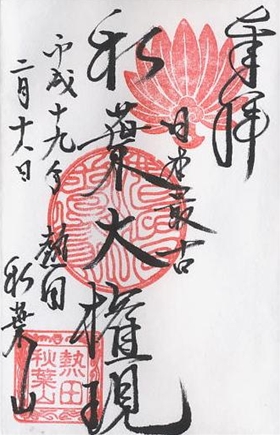 奉拝
日本最古
秋葉大權現
平成十九年
二月
熱田
秋葉山
熱田
秋葉山